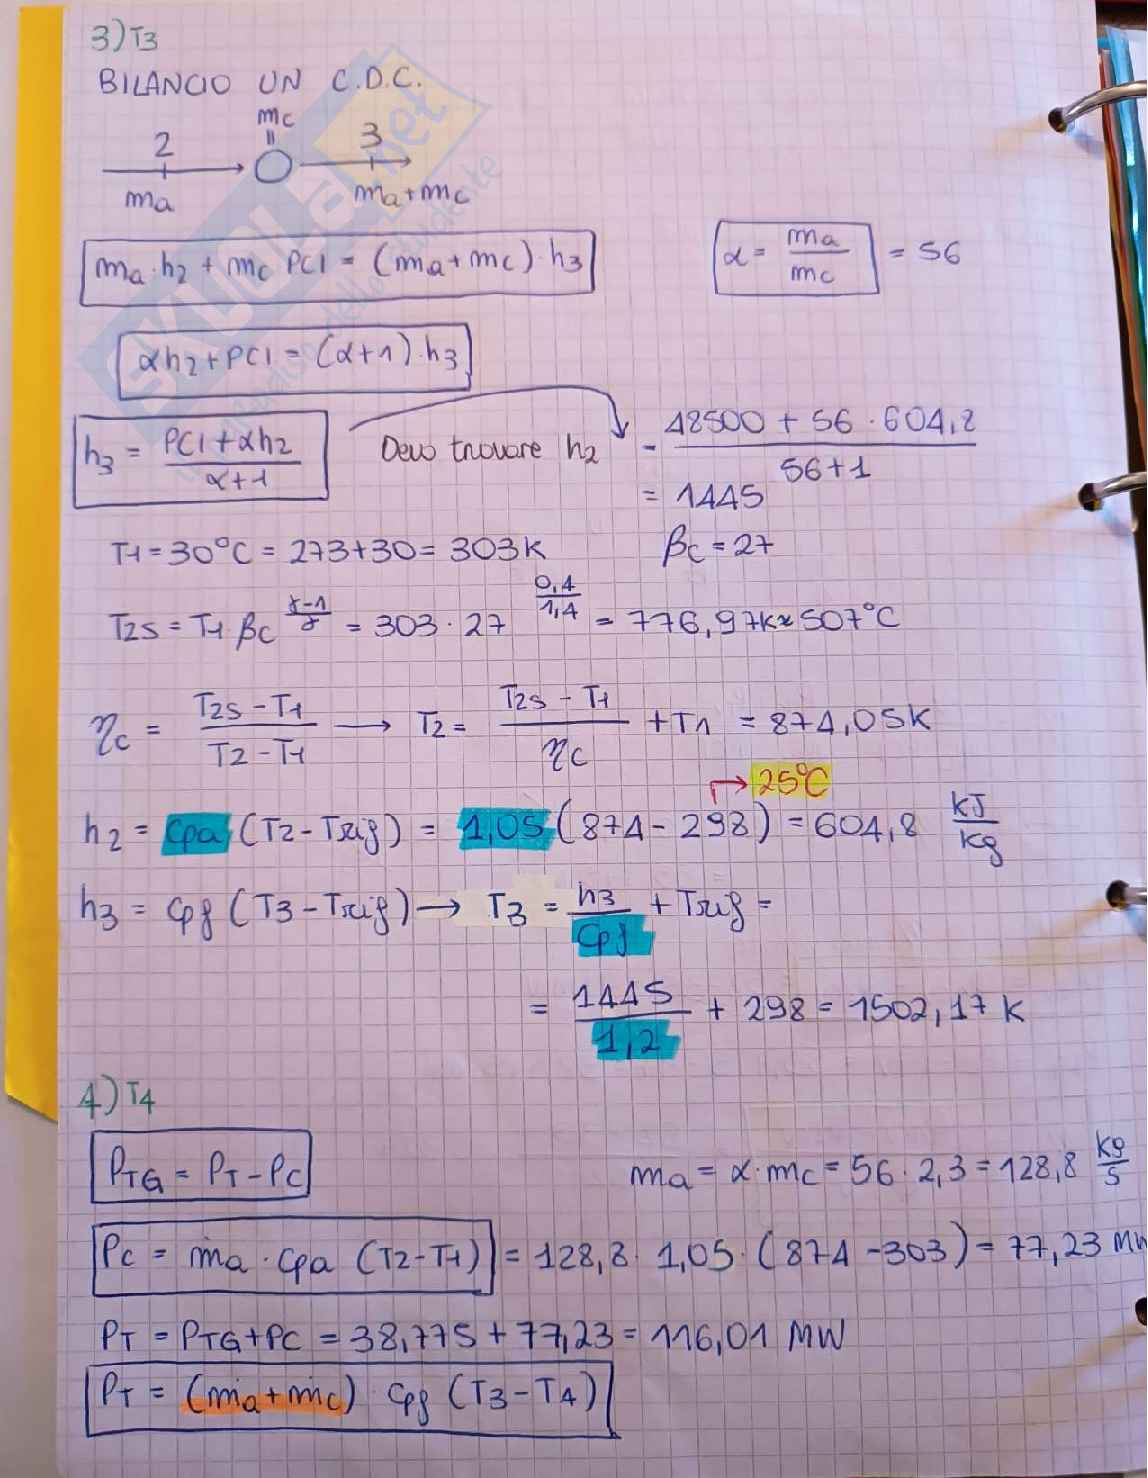 3) T3
BILANCIO UN C.D.C.
mc
2 3
ma ma+mc
ma·h2 + mc PCI = (ma+mc)·h3 α = ma/mc = 56
αh2+PCI = (α+1)·h3
h3 = (PCI+αh2)/(α+1) Devo trovare h2 = (48500 + 56·604,8)/(56+1)
= 1445
T1 = 30°C = 273+30 = 303K βc = 27
T2s = T1 βc^((γ-1)/γ) = 303·27^(0,4/1,4) = 776,97K ≈ 507°C
ηc = (T2s-T1)/(T2-T1) → T2 = (T2s-T1)/ηc + T1 = 874,05K
→ 25°C
h2 = cpa (T2-Trif) = 1,05 (874-298) = 604,8 kJ/kg
h3 = cpf (T3-Trif) → T3 = h3/cpf + Trif =
= 1445/1,2 + 298 = 1502,17 K
4) T4
PTG = PT - PC ma = α·mc = 56·2,3 = 128,8 kg/s
Pc = ṁa·cpa (T2-T1) = 128,8·1,05·(874-303) = 77,23 MW
PT = PTG+PC = 38,775+77,23 = 116,01 MW
PT = (ṁa+ṁc) cpf (T3-T4)
SKUOLA.net